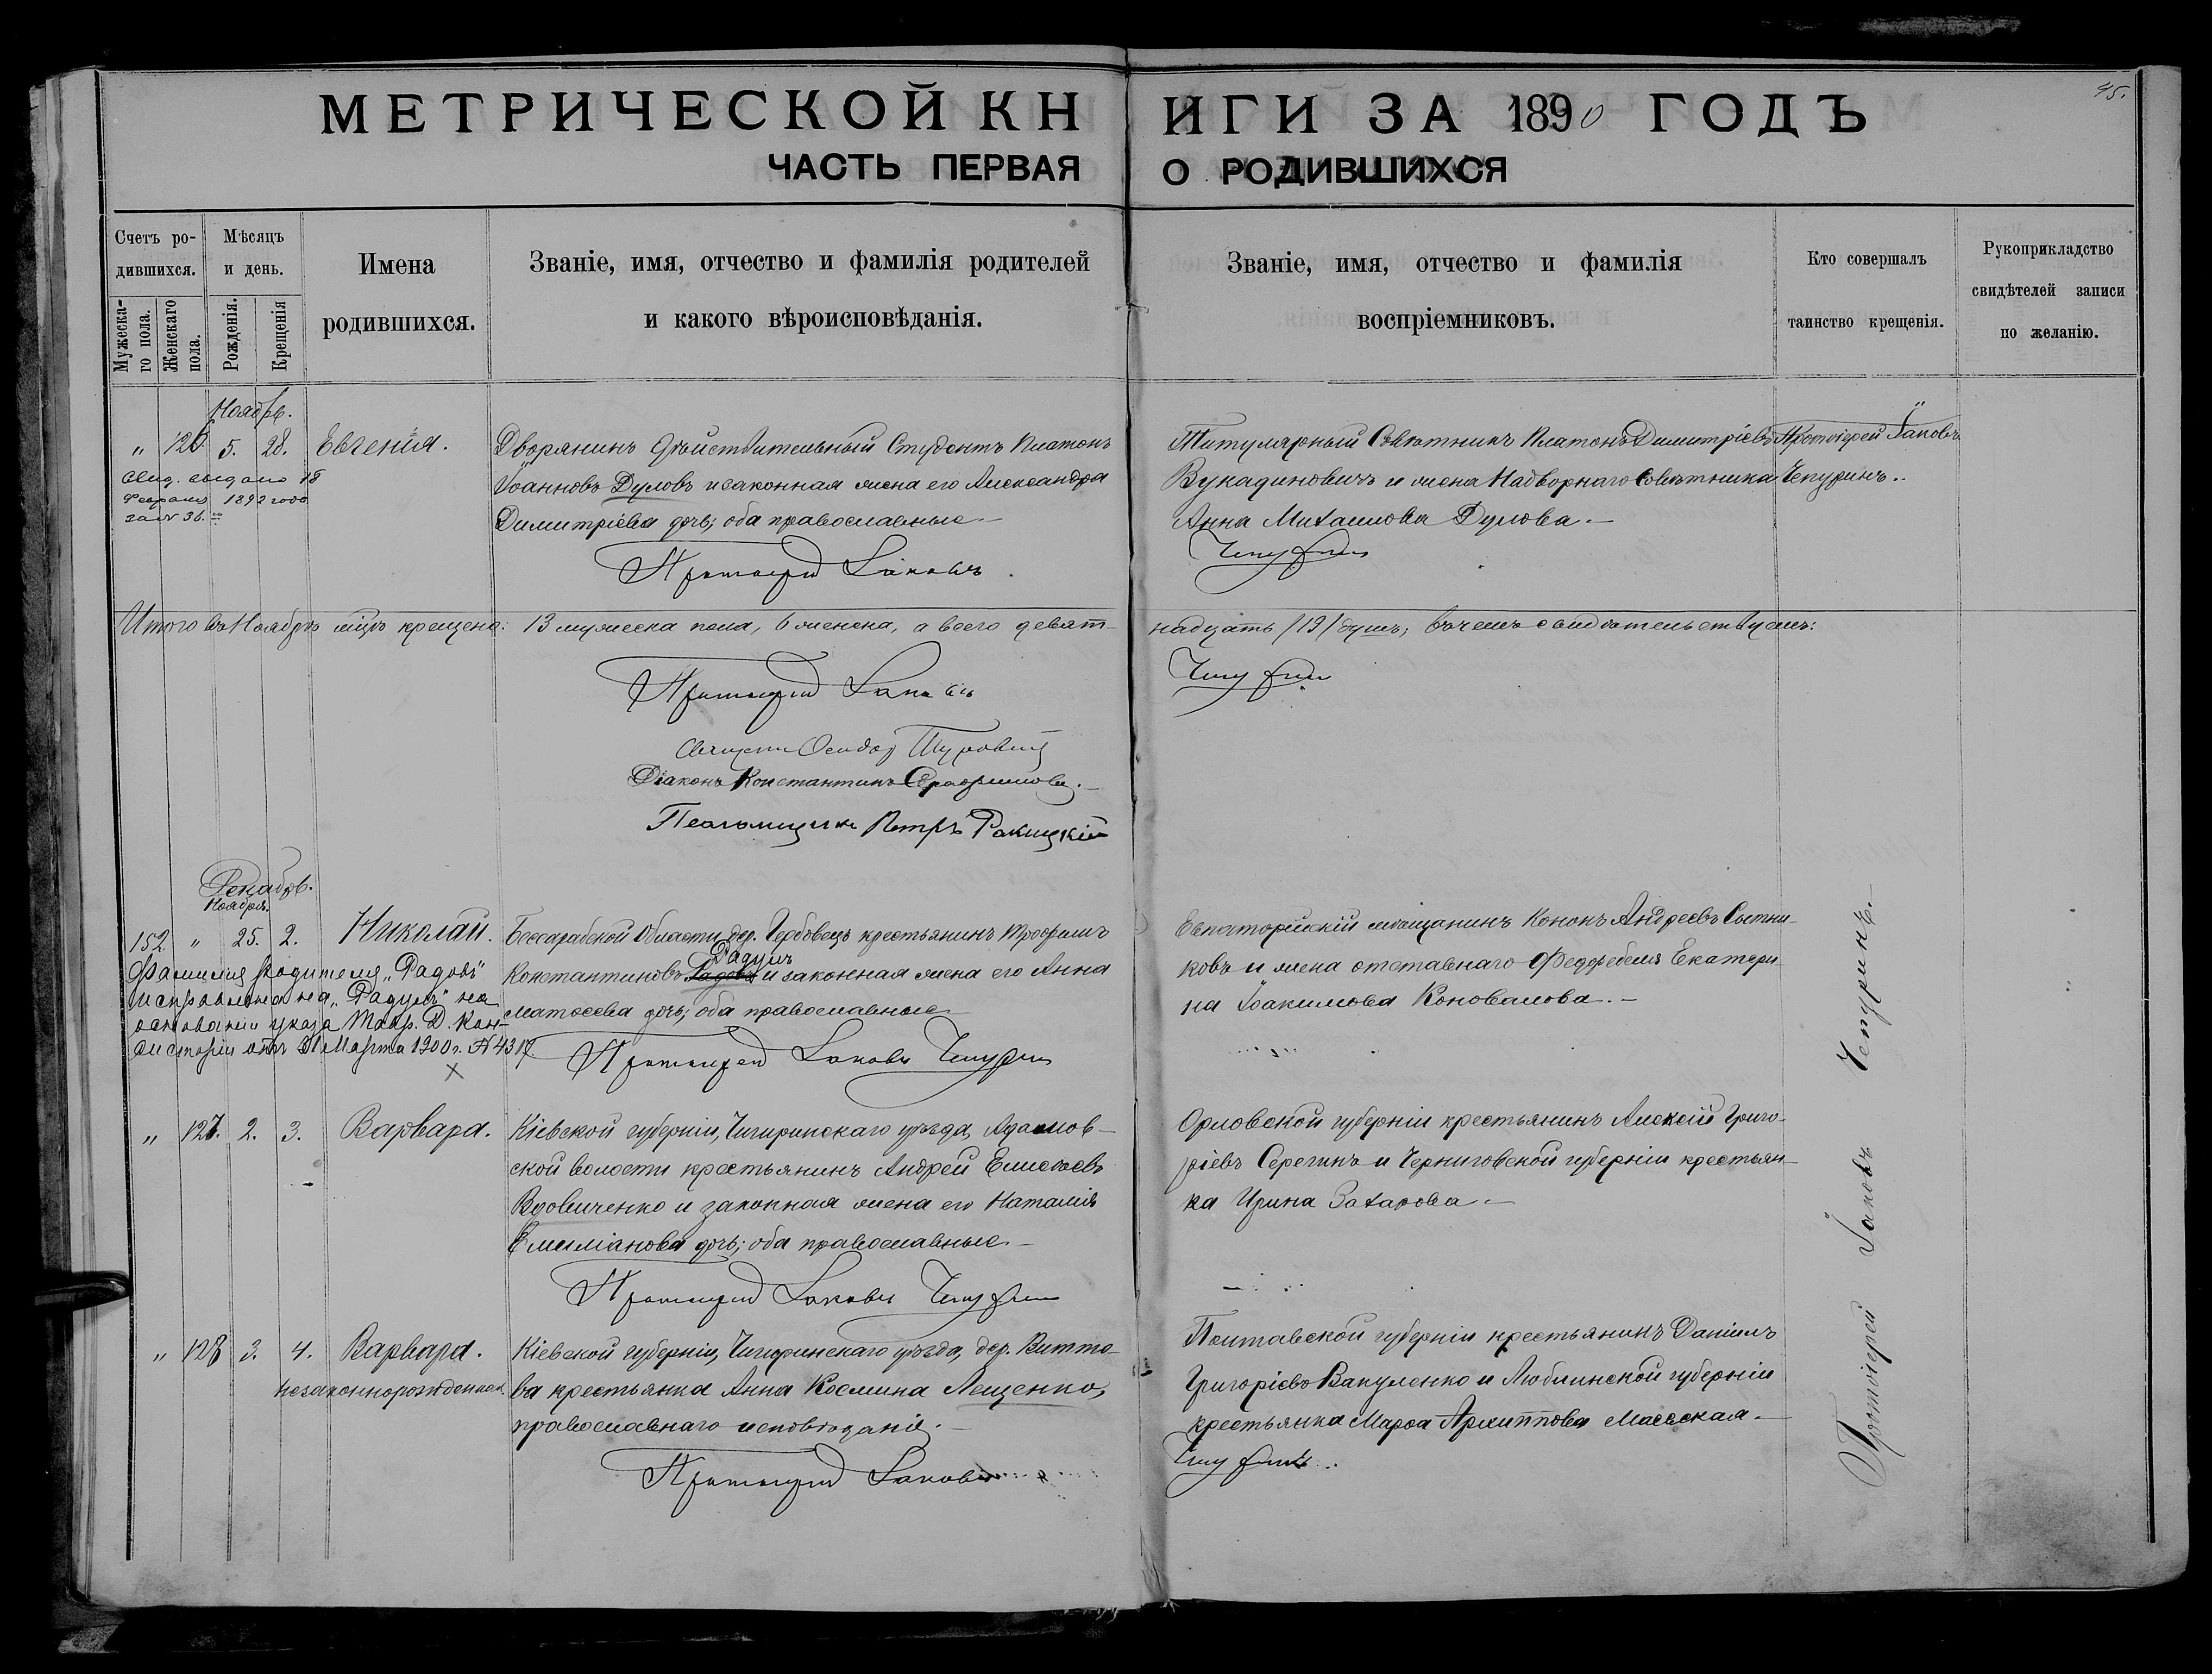 45.
МЕТРИЧЕСКОЙ КНИГИ ЗА 1890 ГОДЪ
ЧАСТЬ ПЕРВАЯ О РОДИВШИХСЯ
Счетъ ро-
дившихся.
Мужеска-
го пола.
Женскаго
пола.
Мѣсяцъ
и день.
Рожденія.
Крещенія
Имена
родившихся.
Званіе, имя, отчество и фамилія родителей
и какого вѣроисповѣданія.
Званіе, имя, отчество и фамилія
воспріемниковъ.
Кто совершалъ
таинство крещенія.
Рукоприкладство
свидѣтелей записи
по желанію.
Ноябрь.
" 126 5. 28. Евгенія.
Свид. выдано 18
Февраля 1892 года
за № 36.
Дворянинъ Дѣйствительный Студентъ Платонъ
Іоанновъ Дуловъ и законная жена его Александра
Димитріева дочь; оба православные.
Протоіерей Іаковъ
Титулярный Совѣтникъ Платонъ Димитріевъ
Вукадиновичъ и жена Надворнаго Совѣтника
Анна Михаилова Дулова.
Чепуринъ
Протоіерей Іаковъ
Чепуринъ..
Итого въ Ноябрѣ мцѣ крещено: 13 мужеска пола, 6 женска, а всего девят-
надцать /19/ душъ; въ чемъ свидѣтельствуемъ:
Протоіерей Іаковъ
Чепуринъ
Діаконъ Константинъ Серафимовъ.
Псаломщикъ Петръ Ракицкій
Декабрь.
Ноября.
152. " 25. 2. Николай.
Фамилия родителя "Радовъ"
исправлена на "Радулъ" на
основаніи указа Тавр. Д. Кон-
систоріи отъ 31 Марта 1900 г. № 4317.
Х
Бессарабской Области, дер. Гербовецъ крестьянинъ Трофимъ
Радулъ
Константиновъ Радовъ и законная жена его Анна
Матѳеева дочь; оба православные
Протоіерей Іаковъ Чепуринъ
Евпаторійскій мѣщанинъ Кононъ Андреевъ Сытни-
ковъ и жена отставнаго Федфебеля Екатери-
на Іоакимова Коновалова.
" 127. 2. 3. Варвара.
Кіевской губерніи, Чигиринскаго уѣзда, Адамов-
ской волости крестьянинъ Андрей Елисеевъ
Вдовиченко и законная жена его Наталія
Емиліанова дочь; оба православные.
Протоіерей Іаковъ Чепуринъ
Орловской губерніи крестьянинъ Алексій Григо-
ріевъ Серегинъ и Черниговской губерніи крестьян-
ка Ирина Захарова.
" 128 3. 4. Варвара.
незаконнорожденная
Кіевской губерніи, Чигиринскаго уѣзда, дер. Витто-
ва крестьянка Анна Космина Лещенко,
православнаго исповѣданія.
Протоіерей Іаковъ
Полтавской губерніи крестьянинъ Даніилъ
Григоріевъ Вакуленко и Люблинской губерніи
крестьянка Марѳа Архиппова
Чепуринъ
Протоіерей Іаковъ Чепуринъ.